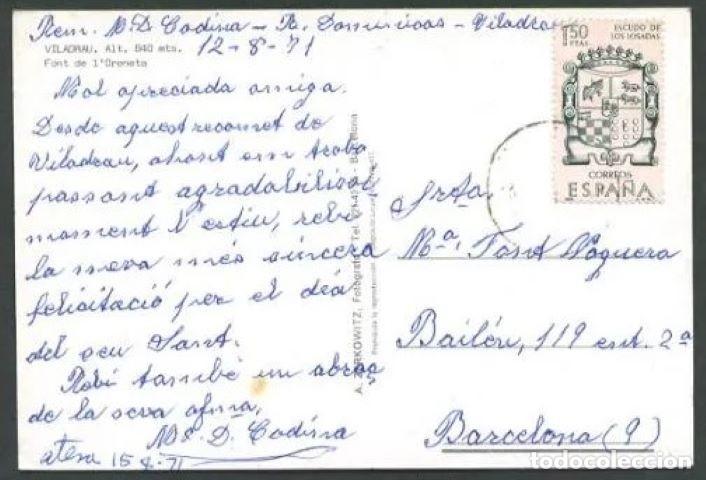 Rem. Mª D. Codina - R. Dominicos - Viladrau
12-8-71
VILADRAU. Alt. 840 mts.
Font de l'Oreneta
Mol apreciada amiga.
Desde aquest reconet de
Viladrau, ahont em trobo
passant agradabilissi
moment l'estiu, rebi
la meva més sincera
felicitació per el dia
del seu Sant.
Rebi també un abraç
de la seva afma,
Mª. D. Codina
atena 15-8-71
A. ZERKOWITZ, Fotógrafo - Tel. - Barcelona
Prohibida la reproducción
1,50
PTAS
ESCUDO DE
LOS LOSADAS
CORREOS
ESPAÑA
Srta.
Mª. Font Noguera
Bailén, 119 ent. 2ª
Barcelona (9)
todocoleccion